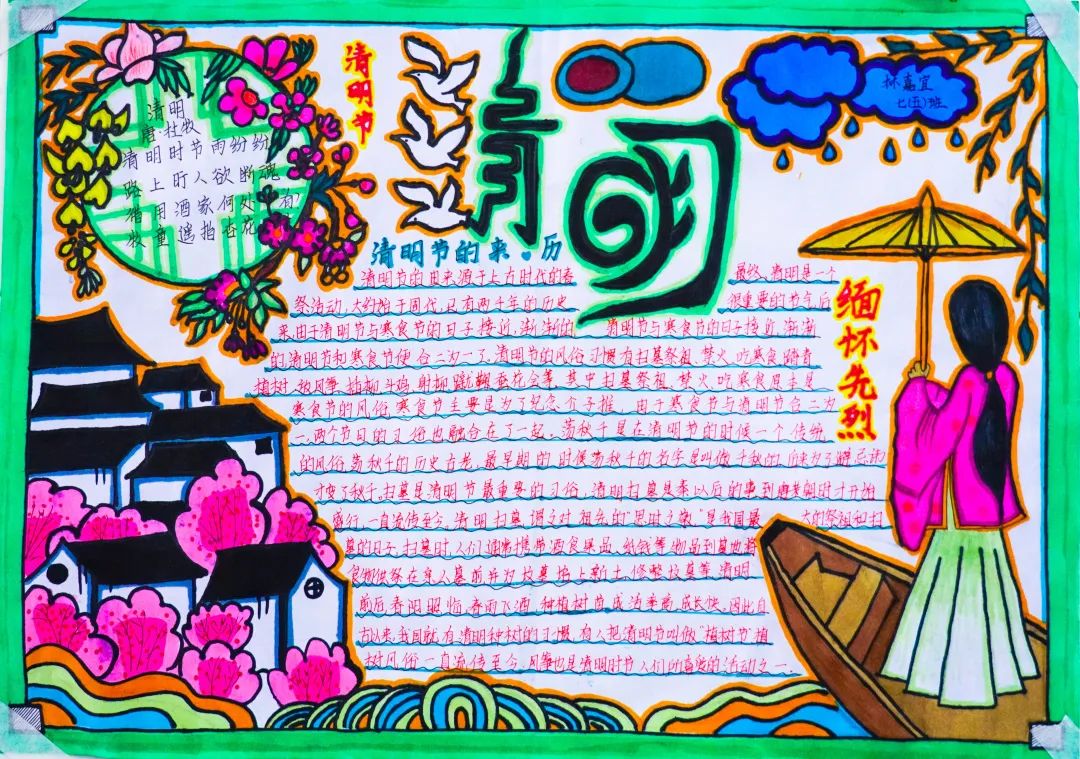 清明节
清明
唐·杜牧
清明时节雨纷纷
路上行人欲断魂
借用酒家何处有
牧童遥指杏花
清明
林嘉宜
七(五)班
缅怀先烈
清明节的来历
清明节的由来源于上古时代的春
祭活动,大约始于周代,已有两千年的历史
最终,清明是一个
很重要的节气后
来由于清明节与寒食节的日子接近,渐渐的
清明节与寒食节的日子接近,渐渐
的清明节和寒食节便合二为一了,清明节的风俗习惯有扫墓祭祖,禁火,吃寒食,踏青
植树,放风筝,插柳,斗鸡,射柳,蹴鞠,蚕花会等,其中扫墓祭祖,禁火,吃寒食原本是
寒食节的风俗,寒食节主要是为了纪念介子推,由于寒食节与清明节合二为
一,两个节日的习俗也融合在了一起,荡秋千是在清明节的时候一个传统
的风俗,荡秋千的历史古老,最早期的时候荡秋千的名字是叫做千秋的,后来为了避忌讳
才变了秋千,扫墓是清明节最重要的习俗,清明扫墓是秦以后的事到唐朝时才开始
盛行,一直流传至今,清明扫墓谓之对祖先的"思时之敬"是我国最
大的祭祖和扫
墓的日子,扫墓时,人们通常携带酒食果品,纸钱等物品到墓地将
食物供祭在亲人墓前并为坟墓培上新土,修整坟墓等清明
前后,春阳照临,春雨飞洒,种植树苗,成活率高,成长快,因此自
古以来,我国就有清明种树的习惯,有人把清明节叫做"植树节",植
树风俗一直流传至今,风筝也是清明时节人们所喜爱的活动之一.